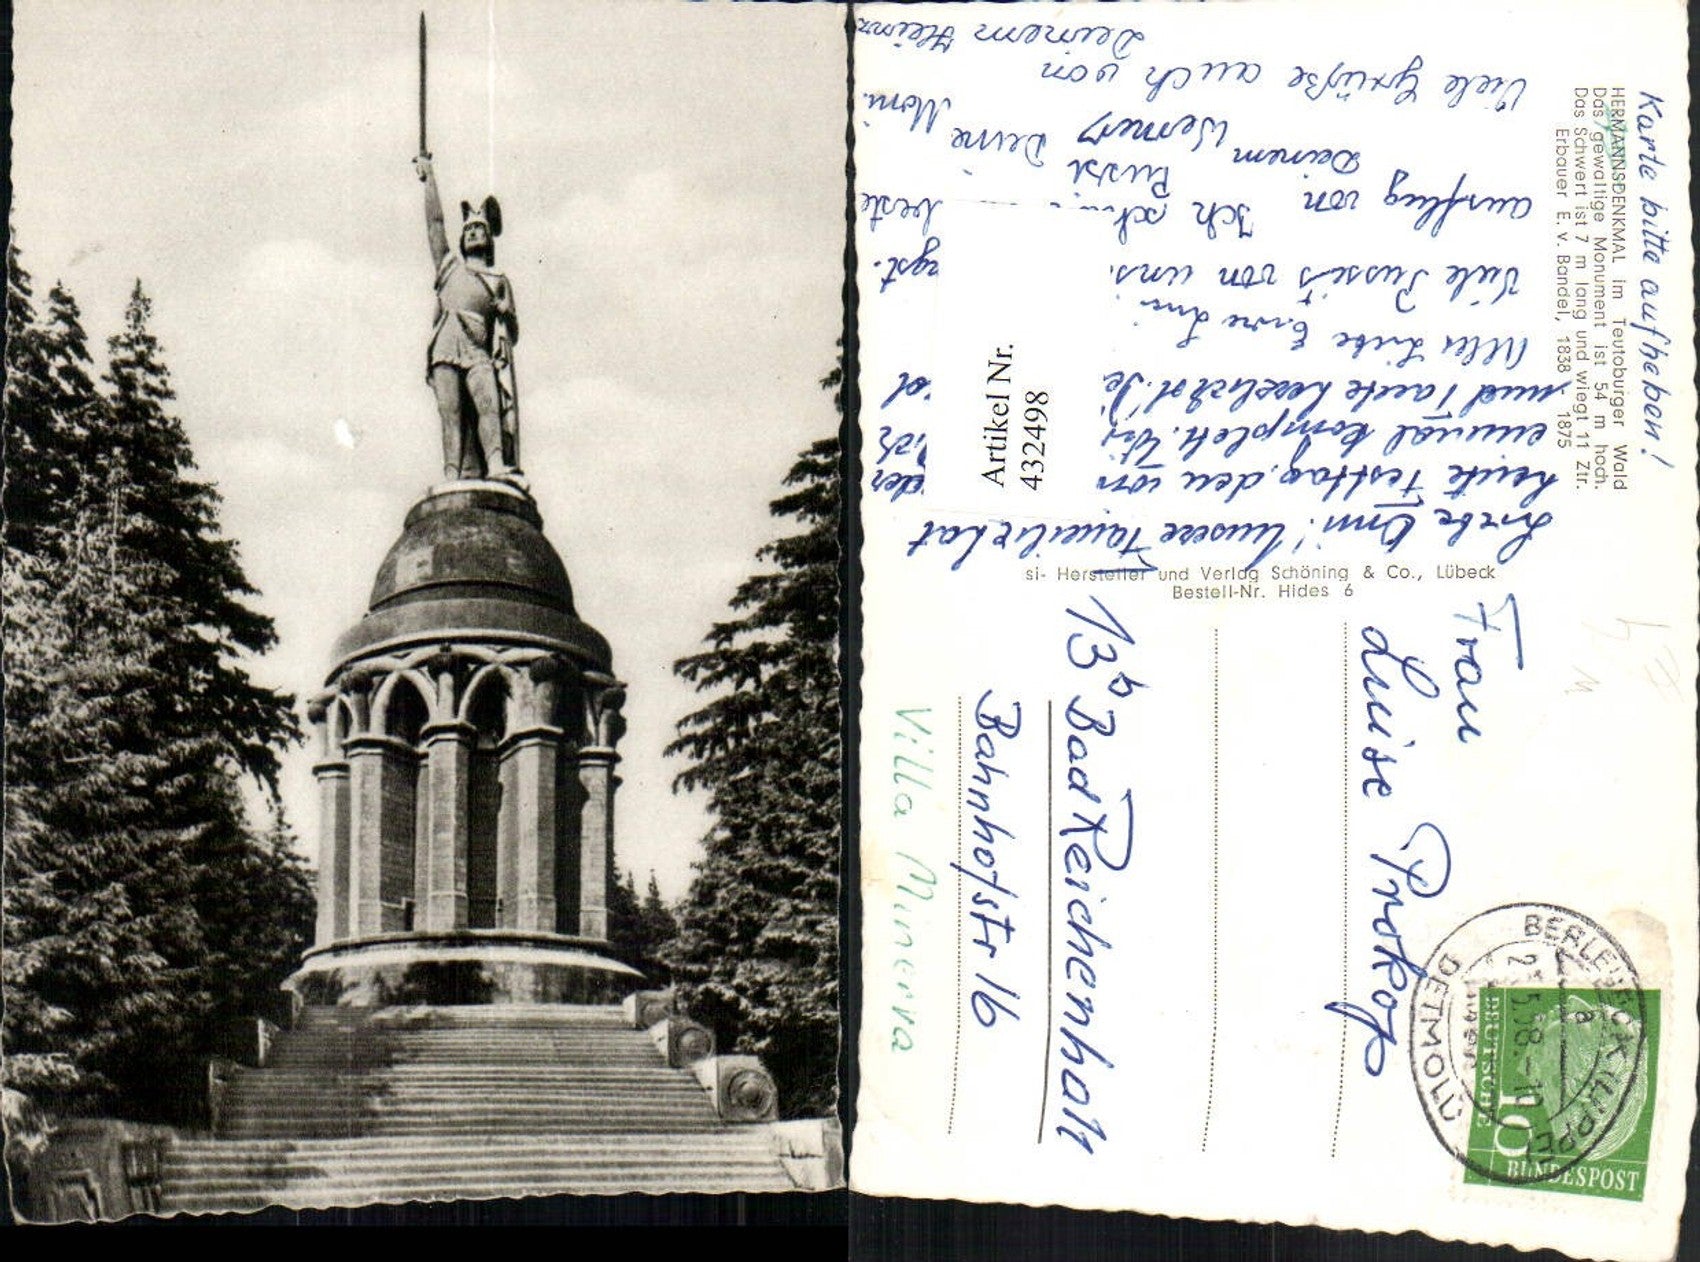 HERMANNSDENKMAL im Teutoburger Wald
Das gewaltige Monument ist 54 m hoch.
Das Schwert ist 7 m lang und wiegt 11 Ztr.
Erbauer E. v. Bandel, 1838 - 1875
Karte bitte aufheben!
Liebe Omi! Unsere Familie hat
heute Festtag, den von der
einmal komplett. Wir
und Tante herzlichst.
Alles Liebe Eure
Viele Bussis von uns.
ausflug von Ich Bussi Deine Moni.
Deinem Werner
Viele Grüße auch von
Deinem Heinz
si- Hersteller und Verlag Schöning & Co., Lübeck
Bestell-Nr. Hides 6
Artikel Nr.
432498
Frau
Luise Prokop
13b Bad Reichenhall
Bahnhofstr 16
Villa Minerva
BERLEBECK (LIPPE)
DETMOLD
.5.58.-10
a
DEUTSCHE
BUNDESPOST
10